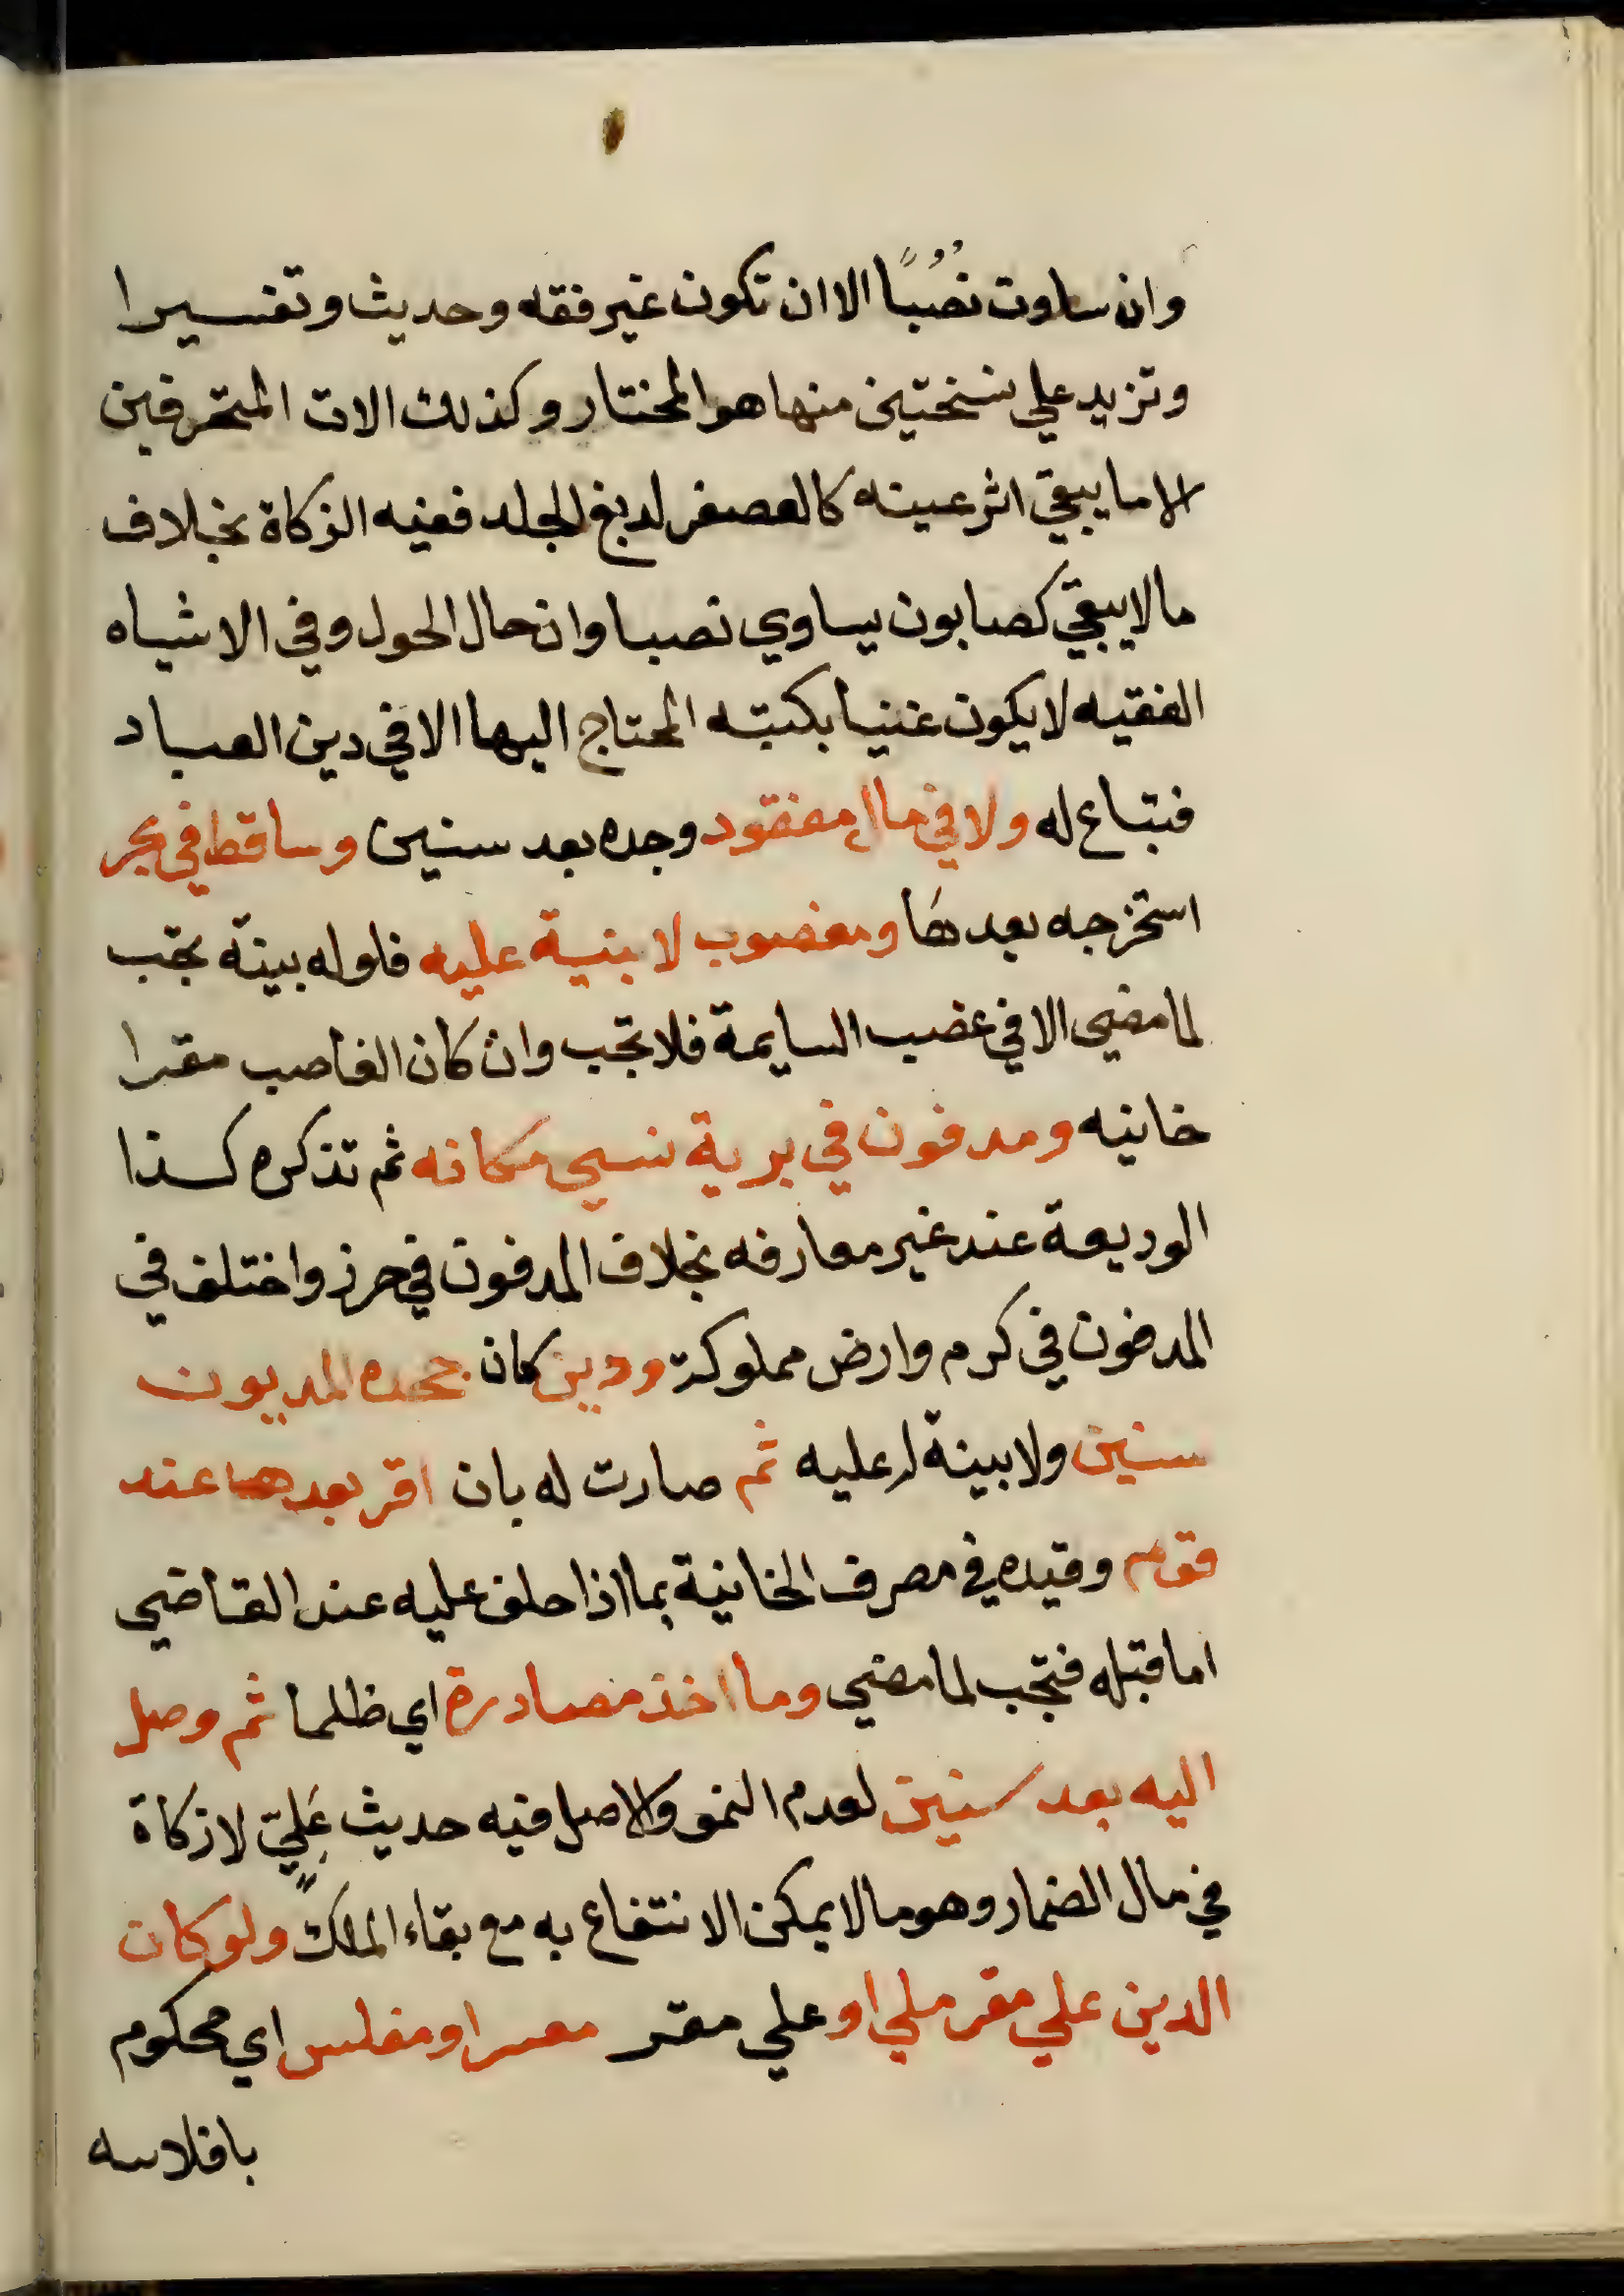 وان ساوت نُصُبًا الا ان تكون غير فقه وحديث وتفسيرا
وتزيد علي نسختين منها هو المختار وكذلك الات المتحرفين
الا ما يبقي اثر عينه كالعصفر لدبغ الجلد ففيه الزكاة بخلاف
ما لا يبقي كصابون يساوي نصبا وان حال الحول وفي الاشياه
الفقيه لا يكون غنيا بكتبه المحتاج اليها الا في دين العباد
فتباع له ولا في مال مفقود وجده بعد سنين وساقط في بحر
استخرجه بعدها ومغصوب لا بنية عليه فلو له بينة تجب
لما مضي الا في غضب السايمة فلا تجب وان كان الغاصب مقرا
خانيه ومدفون في برية نسي مكانه ثم تذكره كذا
الوديعة عند غير معارفه بخلاف المدفون في حرز واختلف في
المدفون في كرم وارض مملوكة ودين كان جحده المديون
سنين ولا بينة له عليه ثم صارت له بان اقر بعدها عند
قوم وقيده في مصرف الخانية بما اذا حلف عليه عند القاضي
اما قبله فتجب لما مضي وما اخذ مصادرة اي ظلما ثم وصل
اليه بعد سنين لعدم النمو والاصل فيه حديث عَلِيّ لا زكاة
في مال الضمار وهو ما لا يمكن الانتفاع به مع بقاء الملك ولو كان
الدين علي مقر ملي او علي مقر معسر او مفلس اي محكوم
بافلاسه